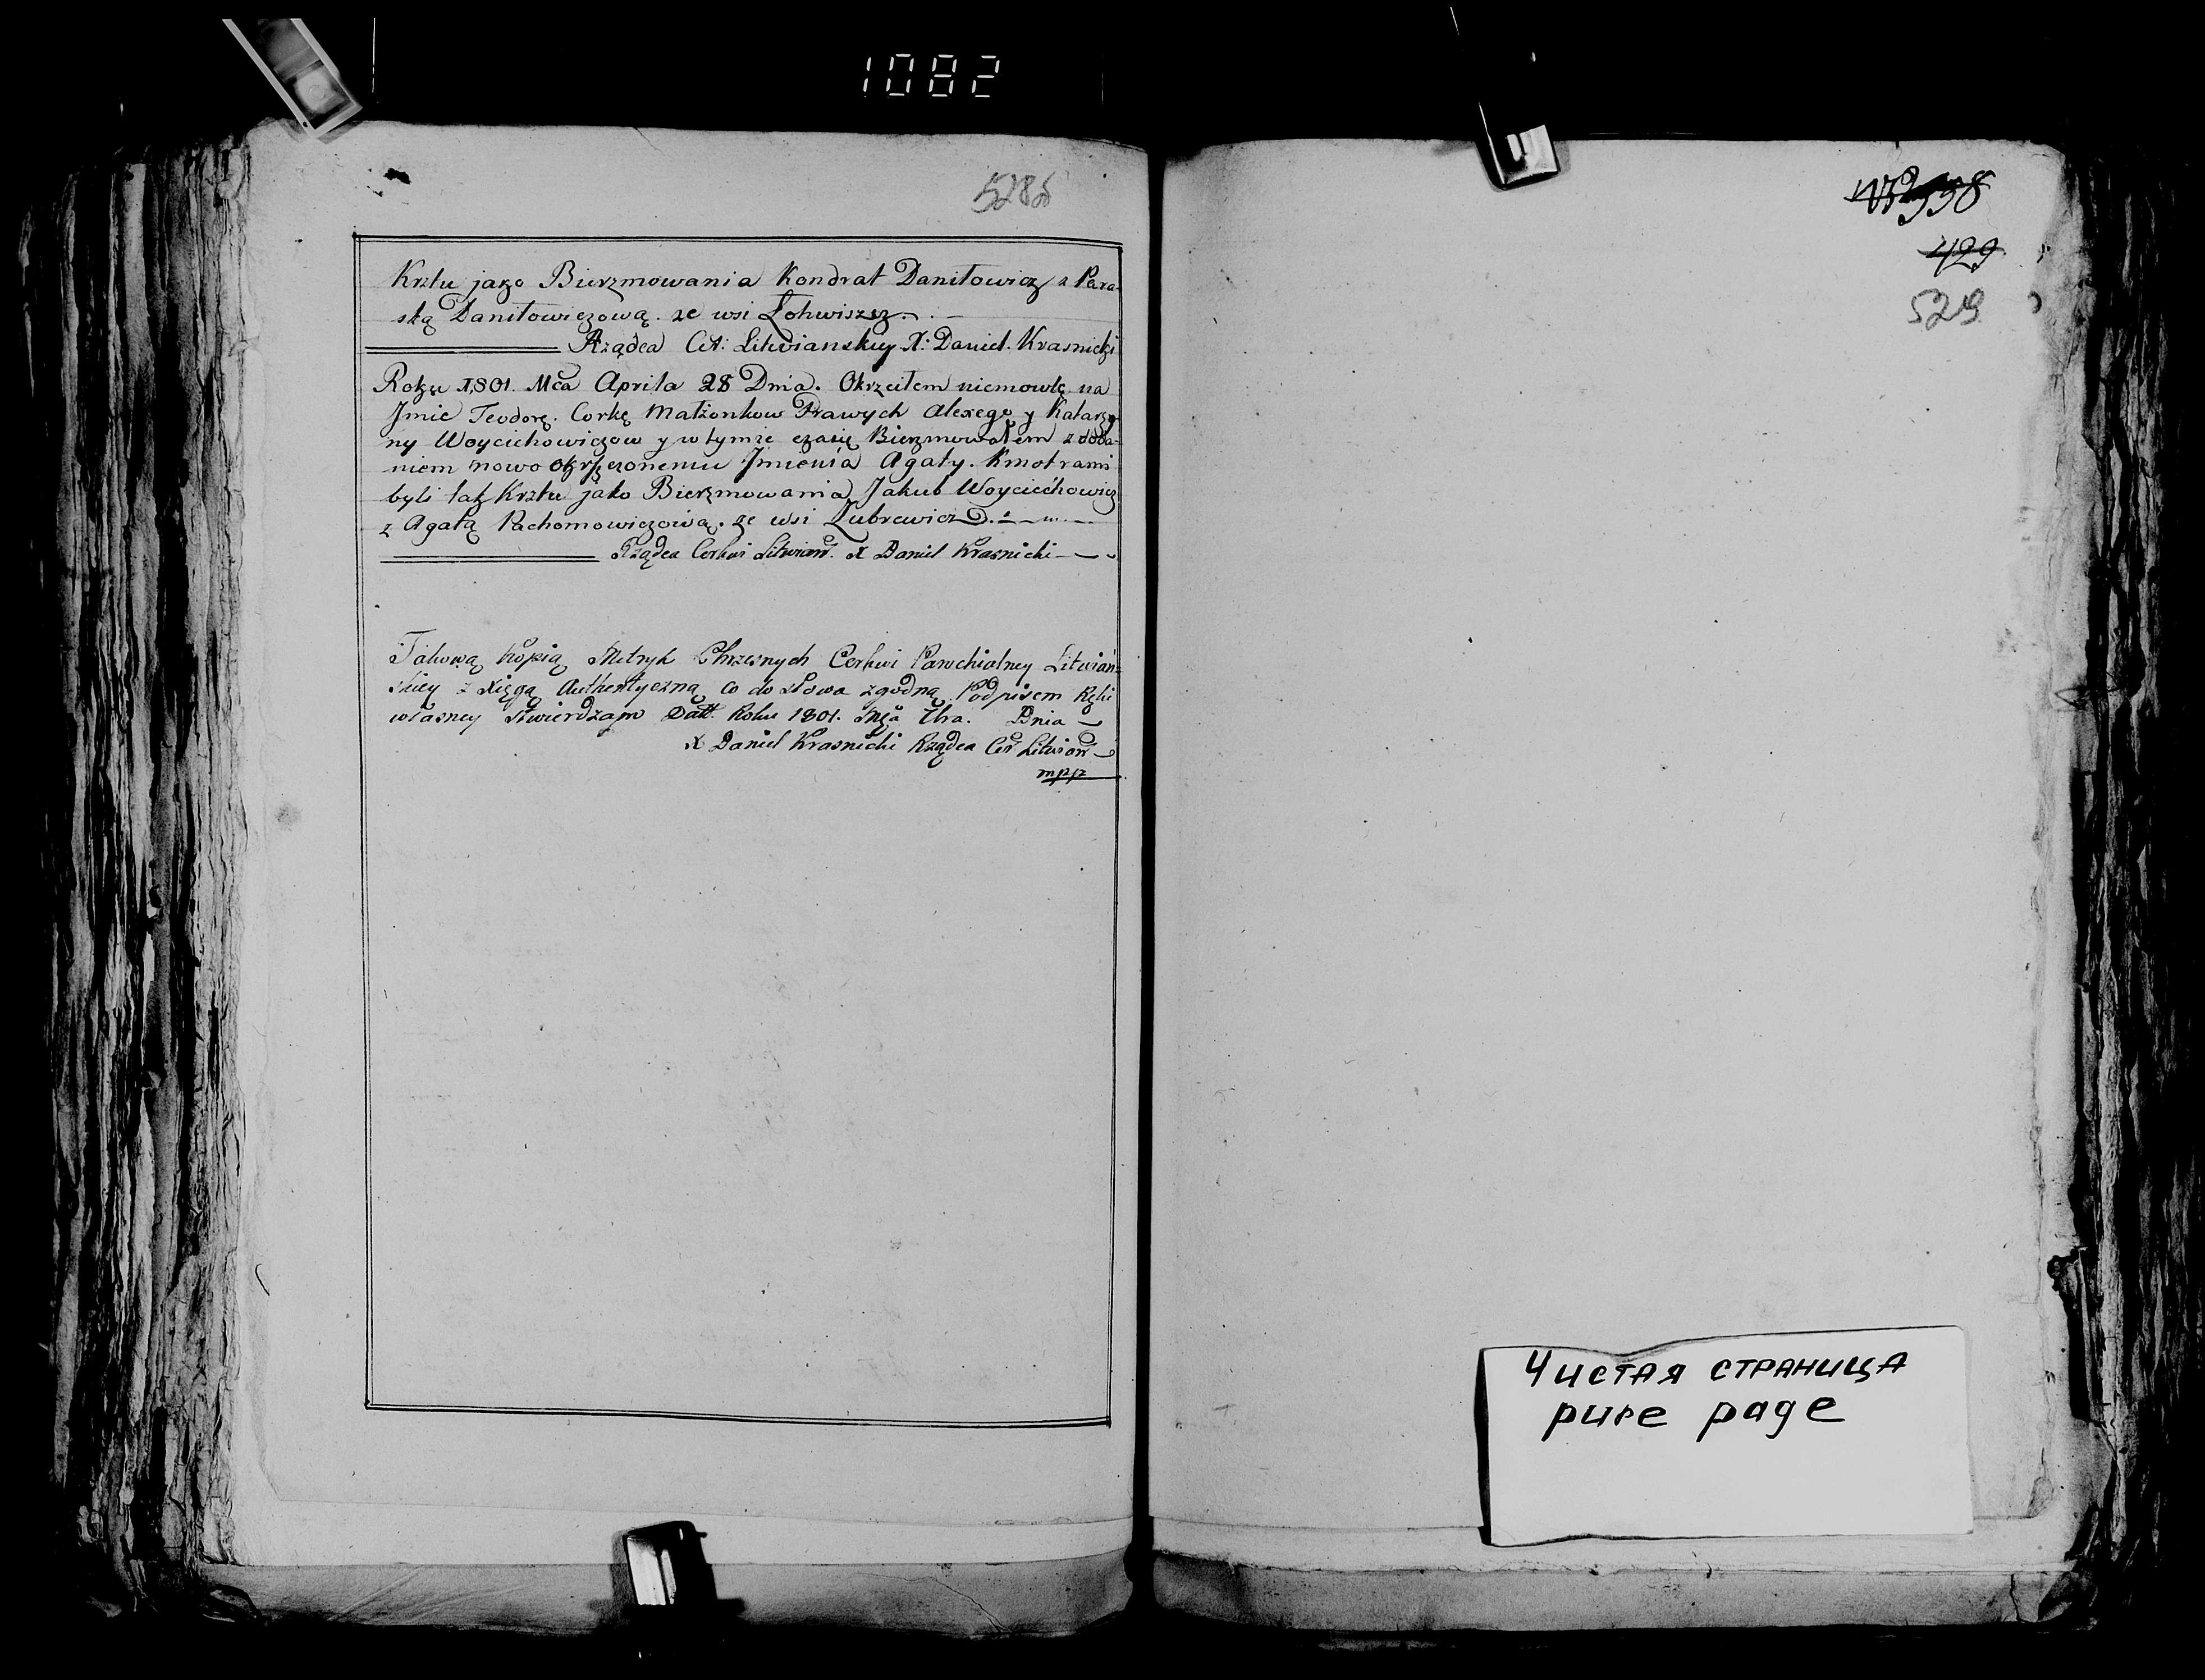 1082
528б
Krztu jako Bierzmowania Kondrat Daniłowicz z Para-
ską Daniłowiczową. ze wsi Łohwiszcz.
Rządca Cer: Litwianskiy X: Daniel. Krasnicki
Roku 1,801. Mca Aprila 28 Dnia. Okrzciłem niemowlę na
Jmie Teodorę. Corkę Małżonkow Prawych Alexego y Katarzy
ny Woyciechowiczow y w tymże czasię Bierzmowałem z doda-
niem nowo okrzczonemu Jmienia Agaty. Kmotrami
byli tak Krztu jako Bierzmowania Jakub Woyciechowicz
z Agatą Pachomowiczową. ze wsi Lubrewicz
Rządca Cerkwi Litwian. X Daniel Krasnicki
Takową kopią Metryk Chrzesnych Cerkwi Parochialney Litwiań-
skiey z Xięgą Authentyczną co do słowa zgodną Podpisem Ręki
własney stwierdzam Datt. Roku 1801. Mca Dnia
X Daniel Krasnicki Rządca Cer Litwian
mpp
429
529
Чистая страница
pure page